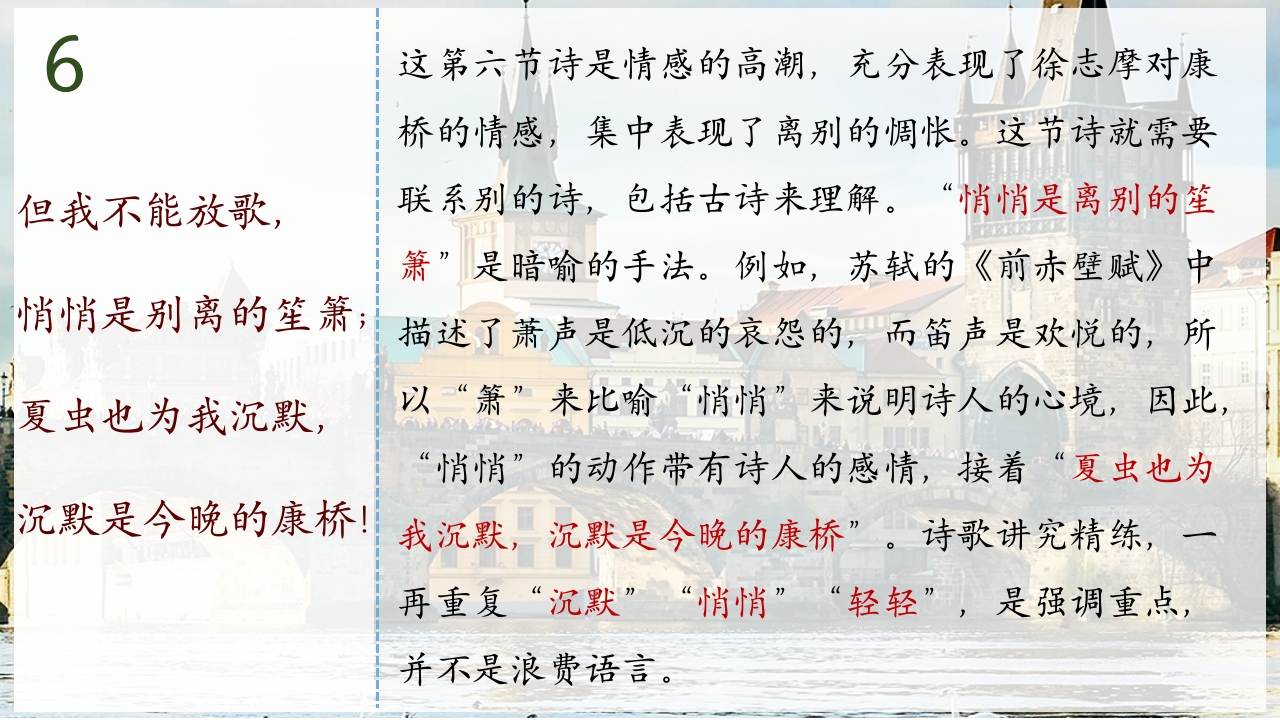 6
但我不能放歌，
悄悄是别离的笙箫；
夏虫也为我沉默，
沉默是今晚的康桥！
这第六节诗是情感的高潮，充分表现了徐志摩对康
桥的情感，集中表现了离别的惆怅。这节诗就需要
联系别的诗，包括古诗来理解。“悄悄是离别的笙
箫”是暗喻的手法。例如，苏轼的《前赤壁赋》中
描述了萧声是低沉的哀怨的，而笛声是欢悦的，所
以“箫”来比喻“悄悄”来说明诗人的心境，因此，
“悄悄”的动作带有诗人的感情，接着“夏虫也为
我沉默，沉默是今晚的康桥”。诗歌讲究精练，一
再重复“沉默”“悄悄”“轻轻”，是强调重点，
并不是浪费语言。